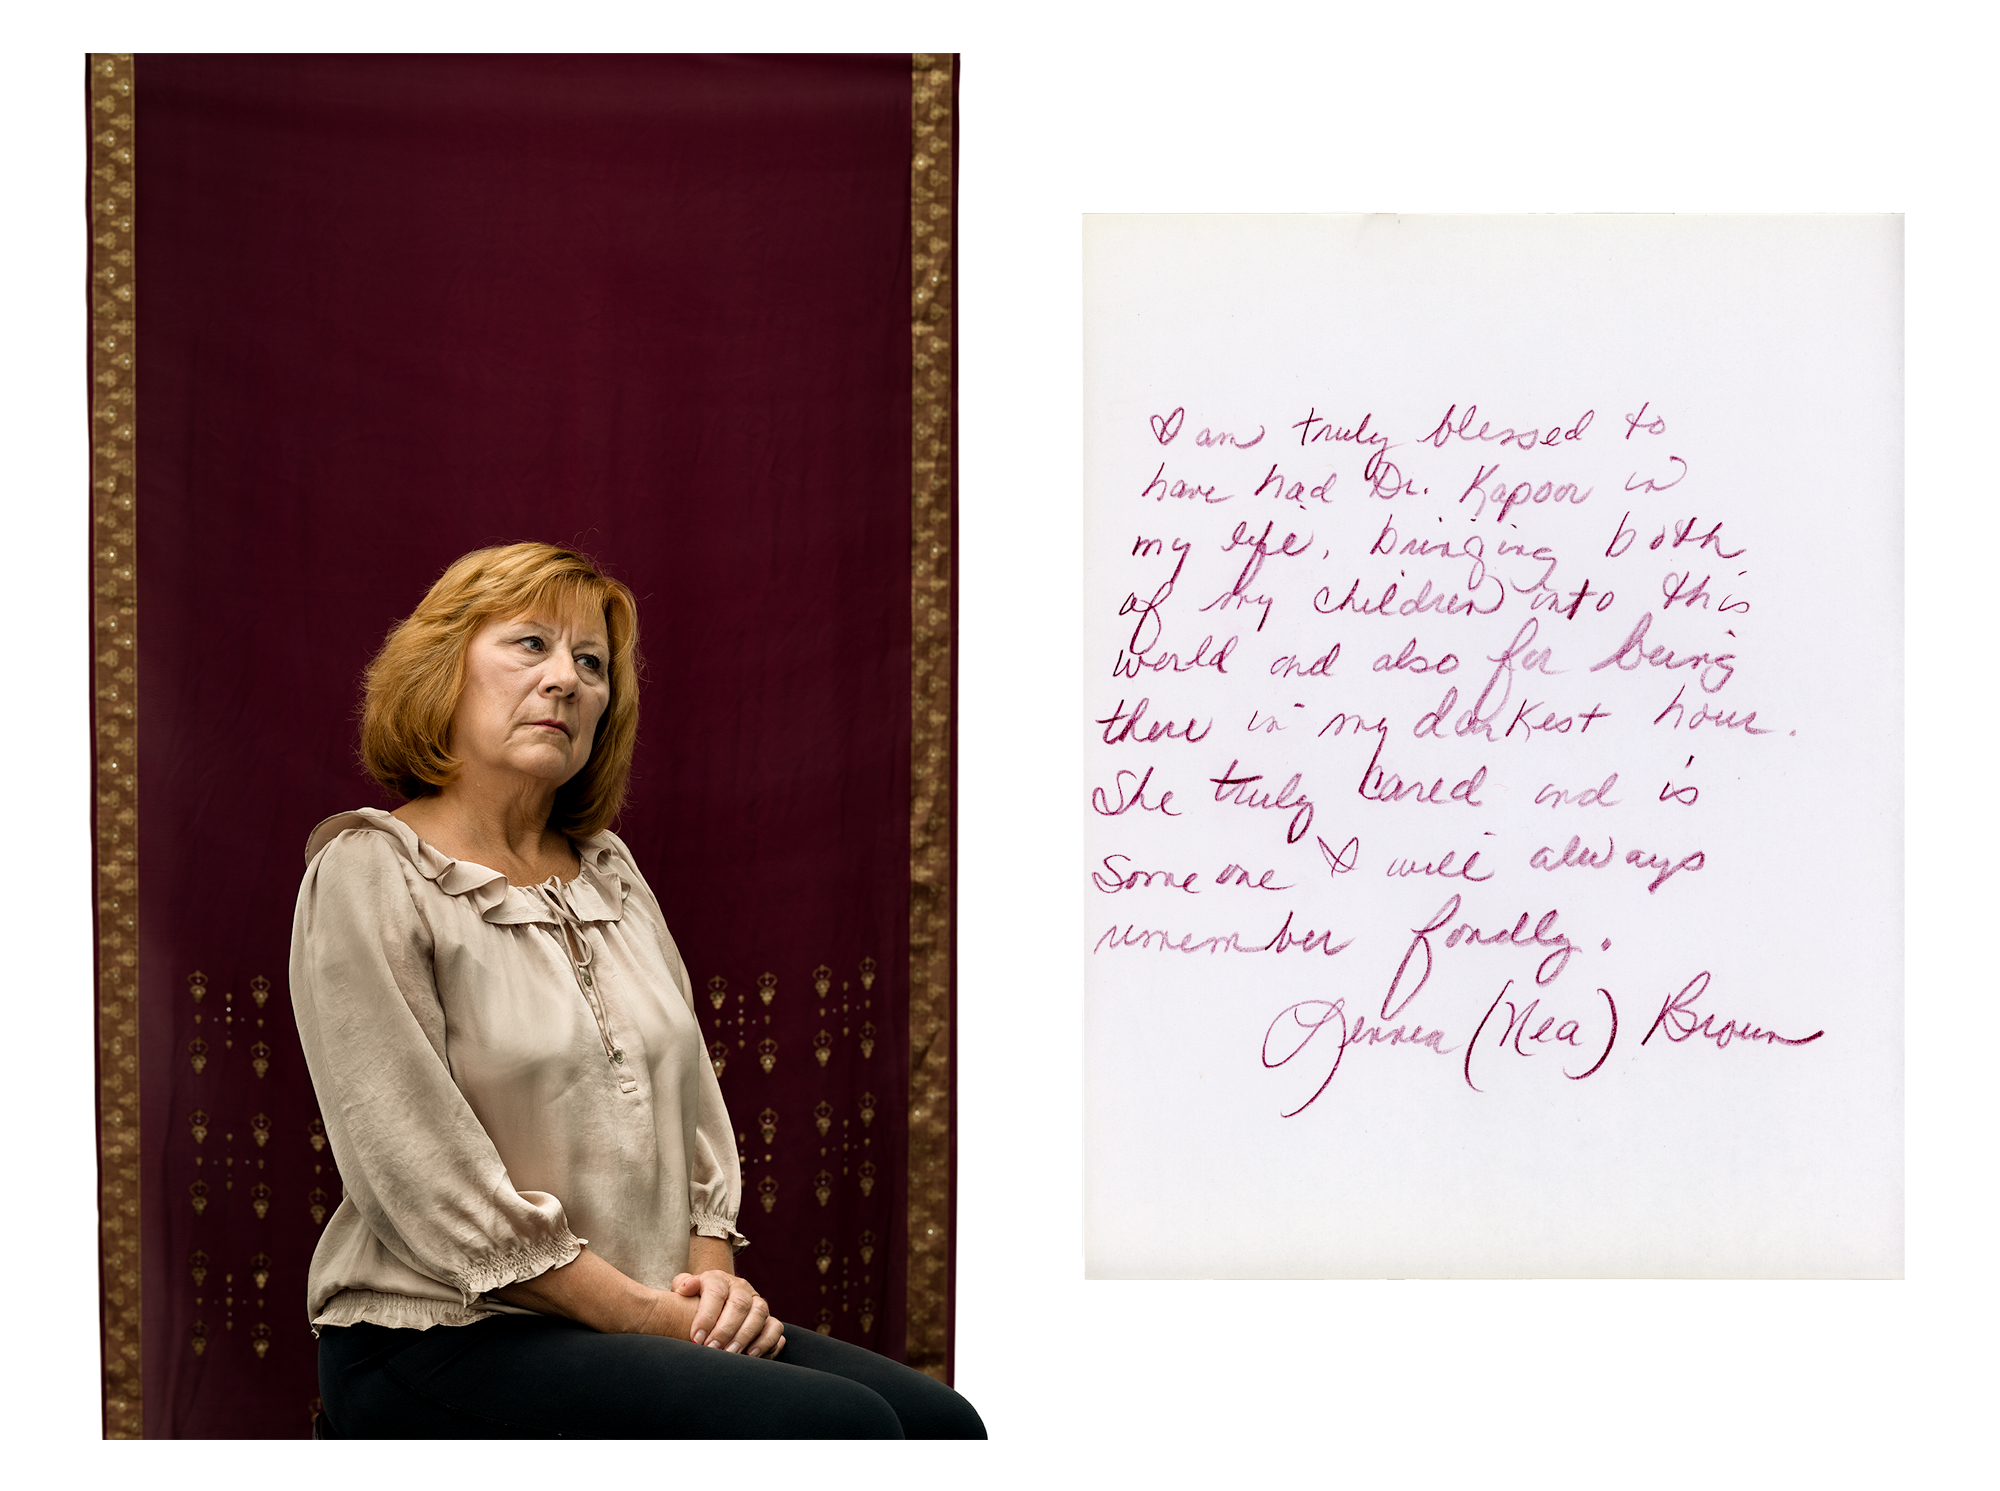 I am truly blessed to
have had Dr. Kapoor in
my life, bringing both
of my children into this
world and also for being
there in my darkest hour.
She truly cared and is
someone I will always
remember fondly.
(Nea) Brown